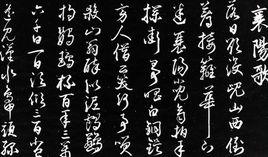 襄陽歌
落日欲没峴山西倒
著接籬華下
迷襄陽小兒齊拍手
攔街爭唱白銅鞮
旁人借問笑何事笑
殺山翁醉似泥鸕鶿
杓鸚鵡杯百年三萬
六千日一日須傾三百杯
遙看漢水鴨頭綠